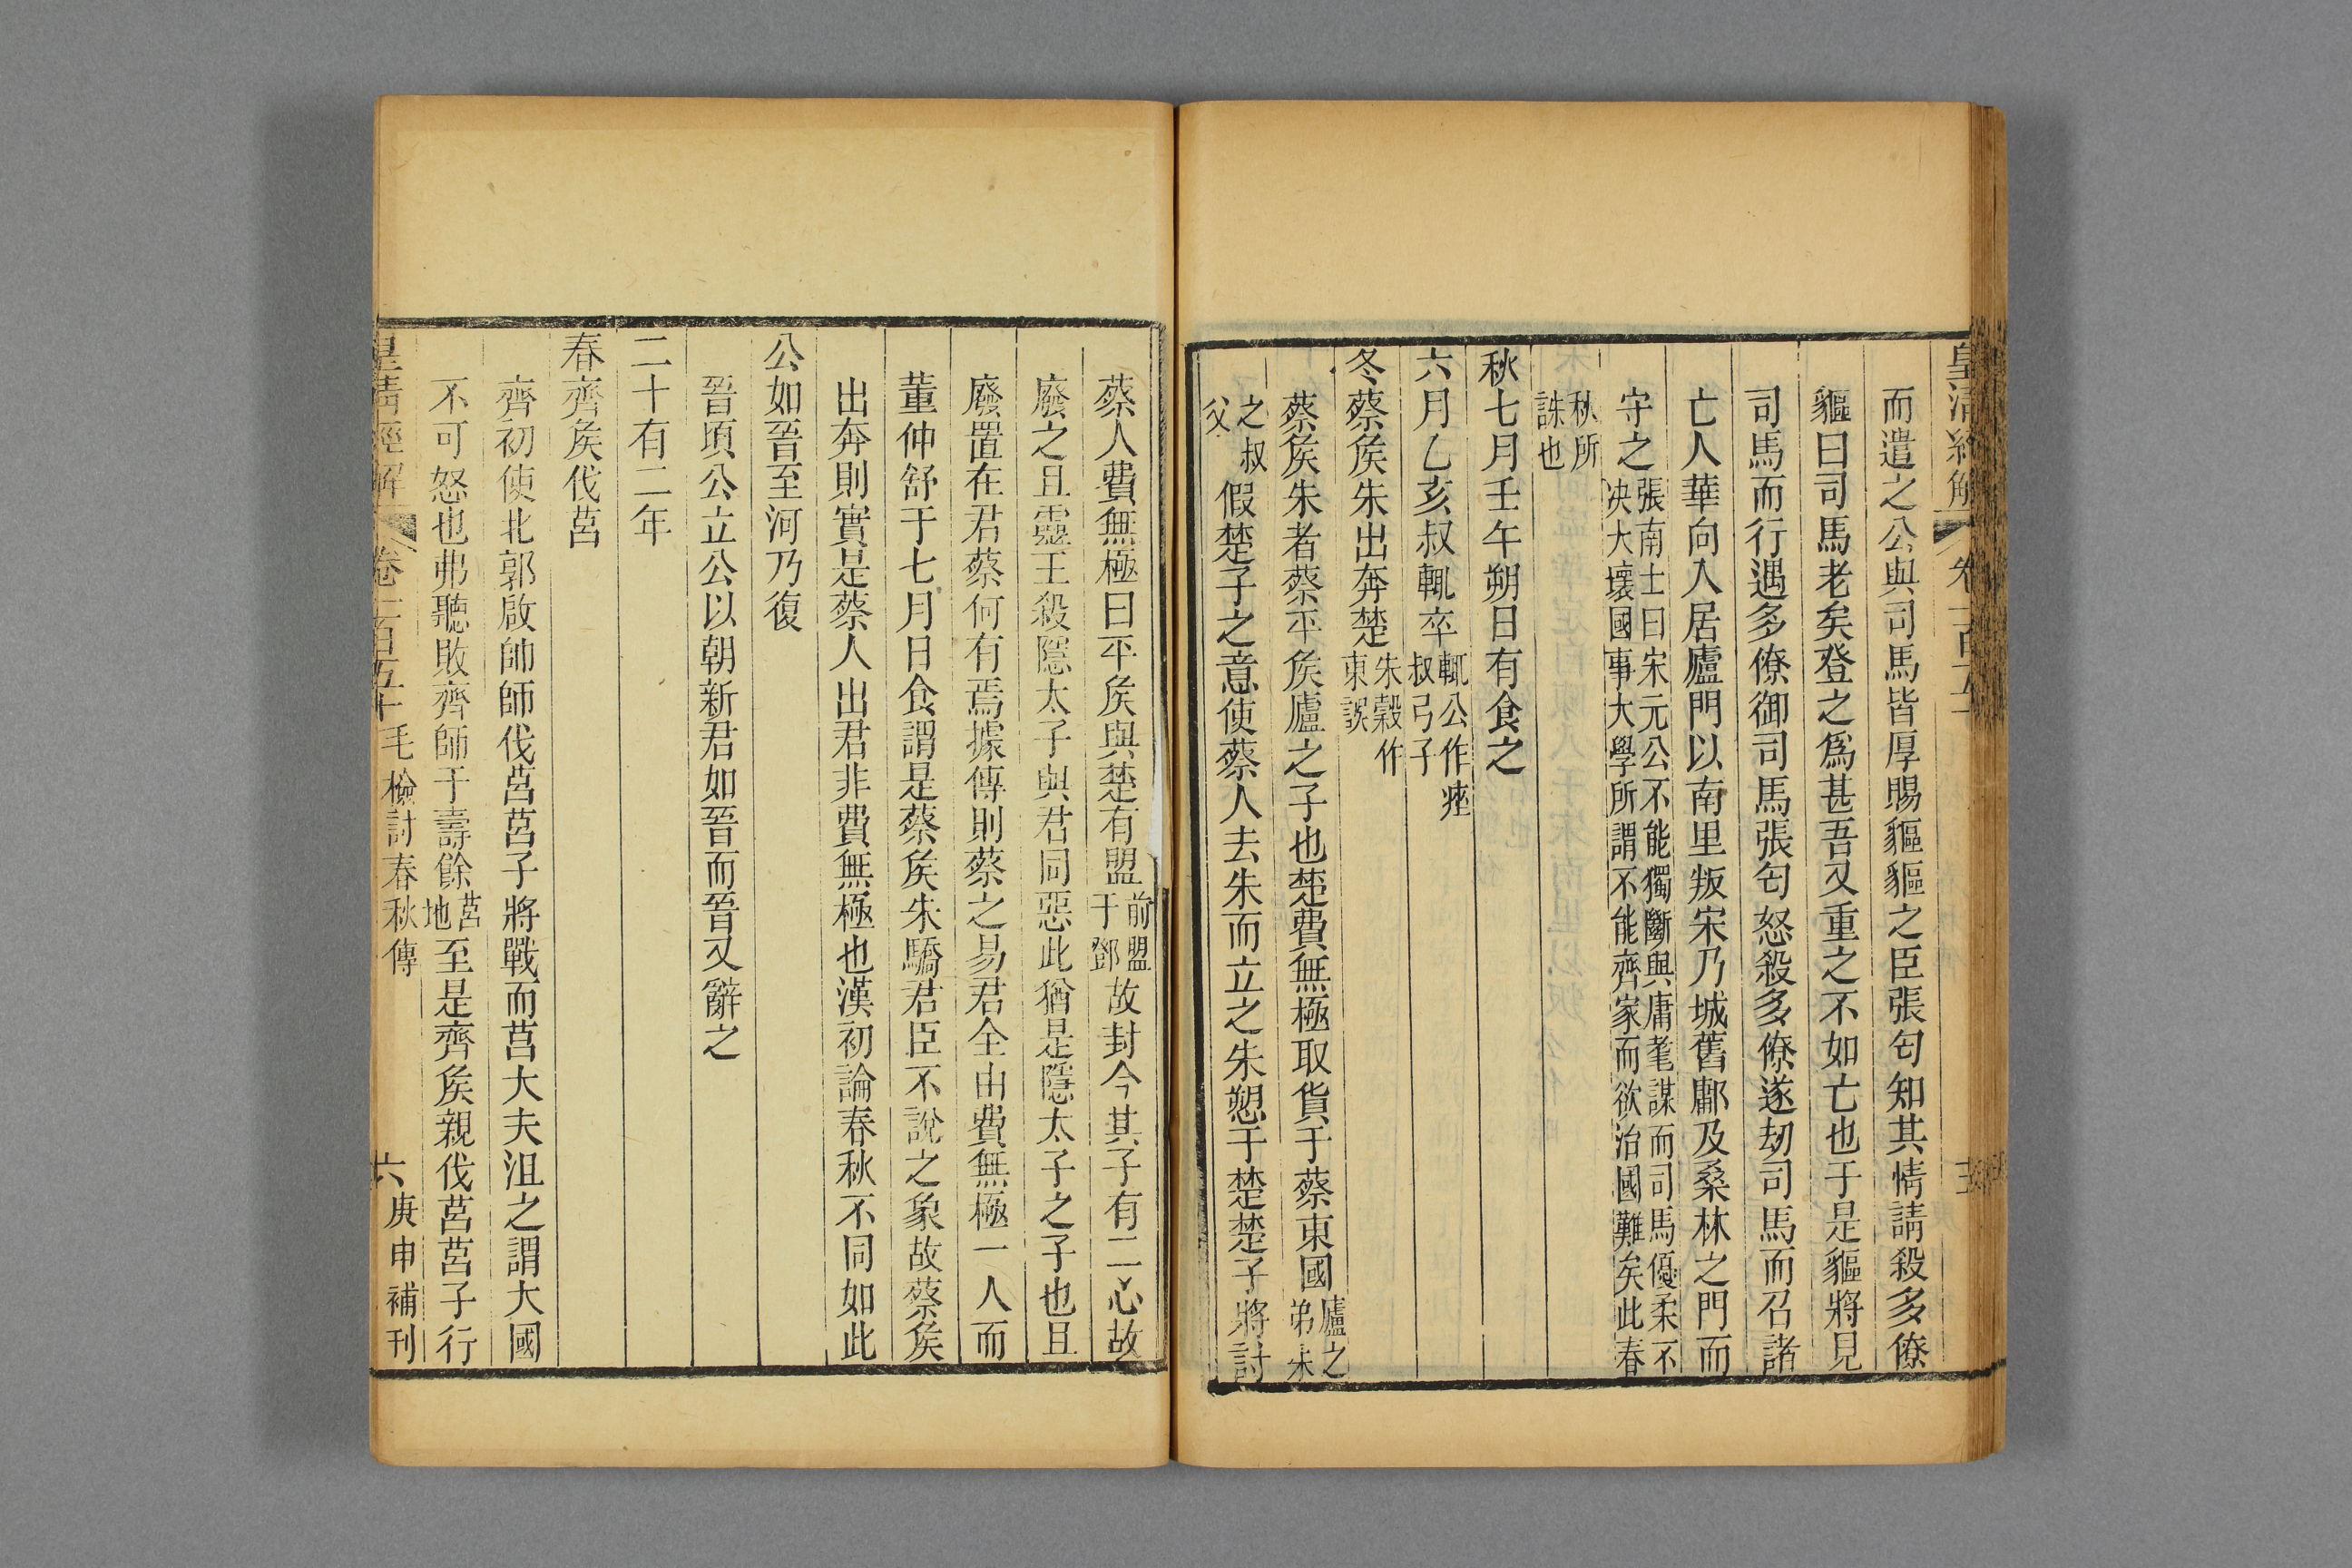 皇清經解 卷一百五十
而遣之公與司馬皆厚賜貙貙之臣張匄知其情請殺多僚
貙曰司馬老矣登之爲甚吾又重之不如亡也于是貙將見
司馬而行遇多僚御司馬張匄怒殺多僚遂刼司馬而召諸
亡人華向入居廬門以南里叛宋乃城舊鄘及桑林之門而
守之張南士曰宋元公不能獨斷與庸耄謀而司馬優柔不
决大壞國事大學所謂不能齊家而欲治國難矣此春
秋所
誅也
秋七月壬午朔日有食之
六月乙亥叔輒卒輒公作痤
叔弓子
冬蔡矦朱出奔楚朱榖作
東誤
蔡矦朱者蔡平矦廬之子也楚費無極取貨于蔡東國廬之
弟朱
之叔
父假楚子之意使蔡人去朱而立之朱愬于楚楚子將討
蔡人費無極曰平矦與楚有盟前盟
于鄧故封今其子有二心故
廢之且靈王殺隱太子與君同惡此猶是隱太子之子也且
廢置在君蔡何有焉據傳則蔡之易君全由費無極一人而
董仲舒于七月日食謂是蔡矦朱驕君臣不說之象故蔡矦
出奔則實是蔡人出君非費無極也漢初論春秋不同如此
公如晉至河乃復
晉頃公立公以朝新君如晉而晉又辭之
二十有二年
春齊矦伐莒
齊初使北郭啟帥師伐莒莒子將戰而莒大夫沮之謂大國
不可怒也弗聽敗齊師于壽餘莒
地至是齊矦親伐莒莒子行
皇清經解 卷一百五十 毛檢討春秋傳 六 庚申補刊